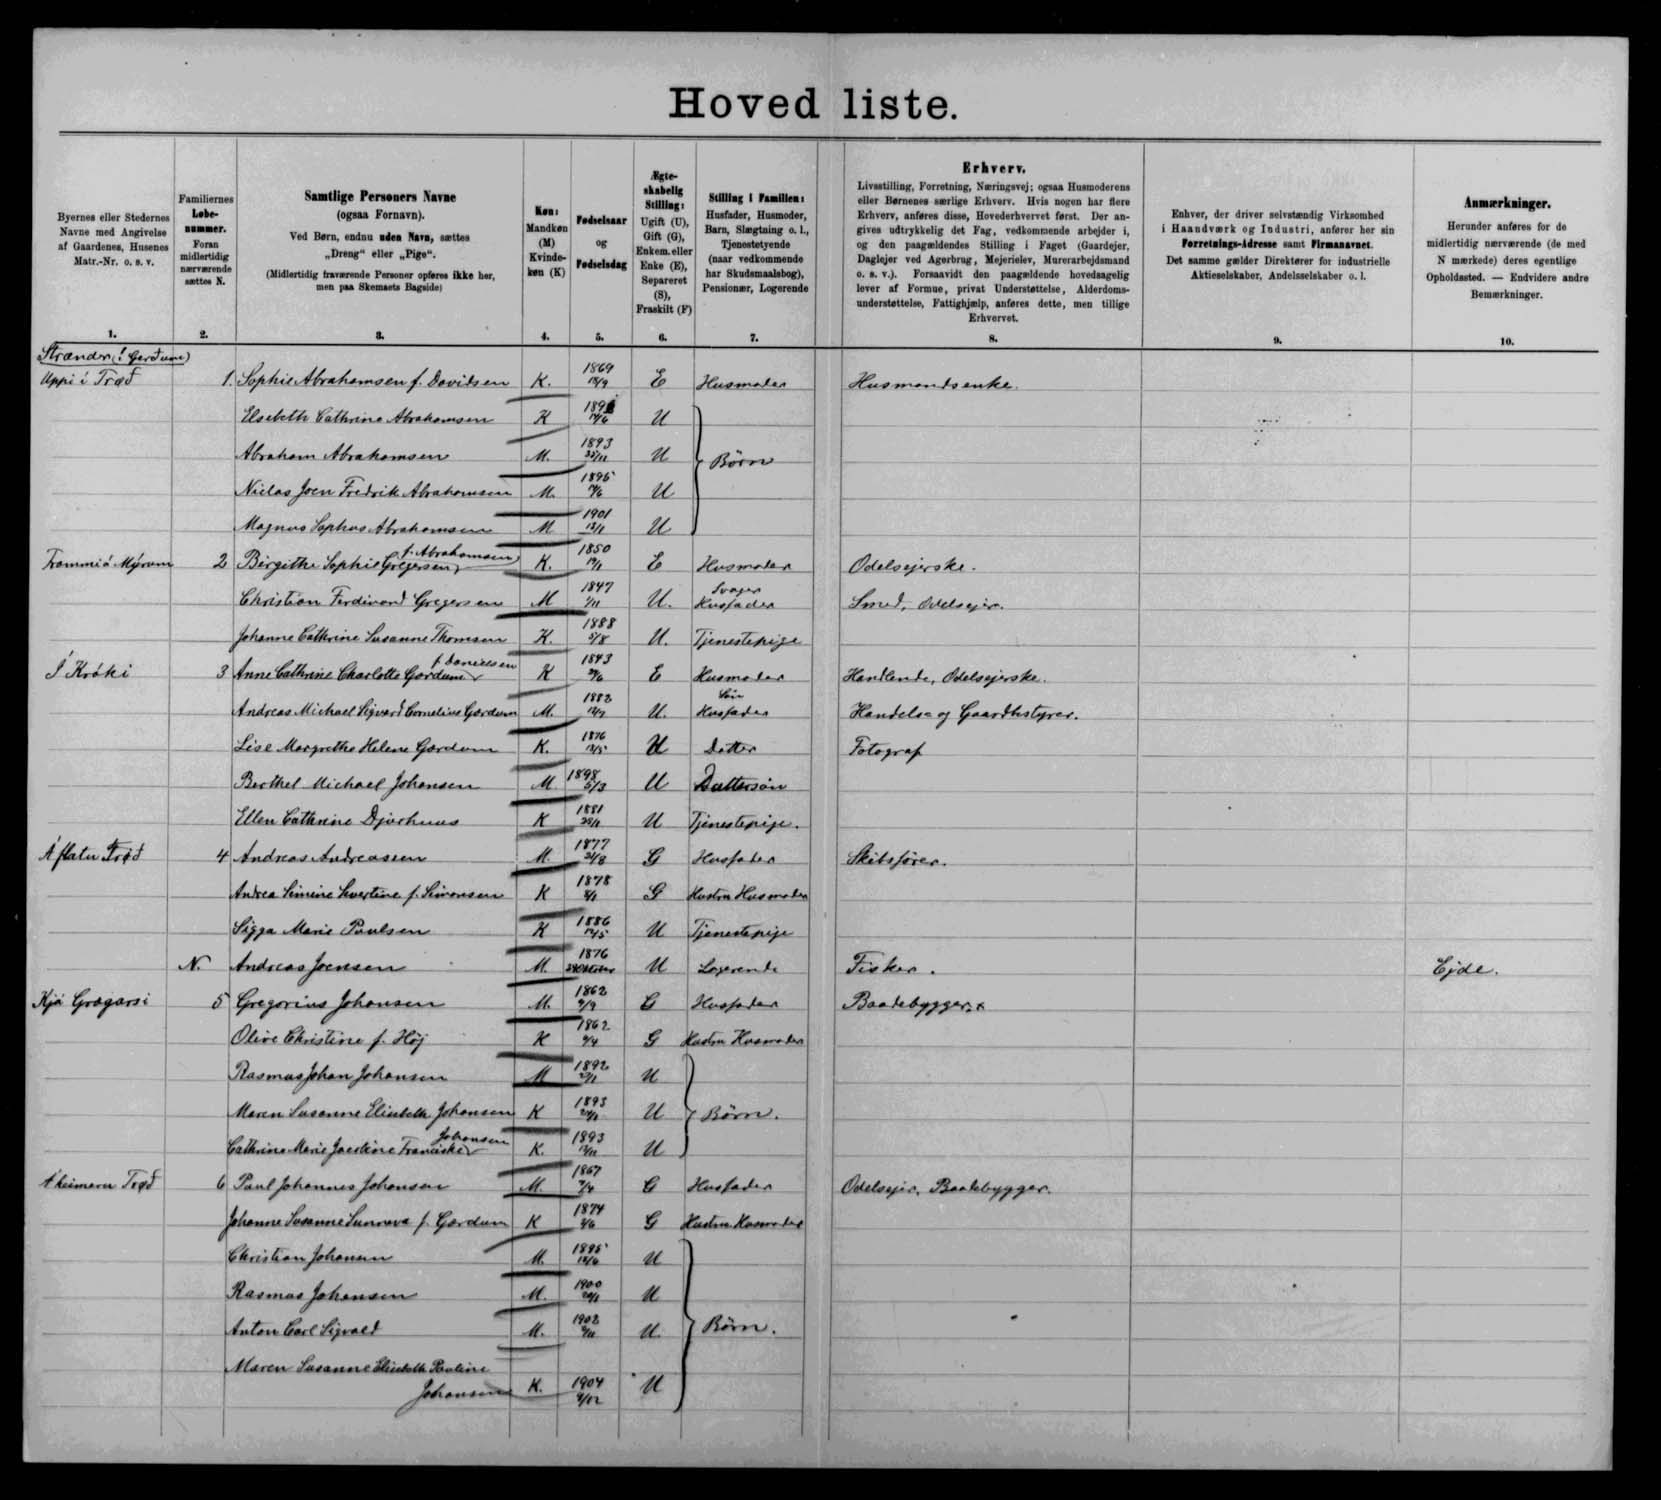 Hoved liste.
Byernes eller Stedernes
Navne med Angivelse
af Gaardenes, Husenes
Matr.-Nr. o. s. v.
1.
Familiernes
Løbe-
nummer.
Foran
midlertidig
nærværende
sættes N.
2.
Samtlige Personers Navne
(ogsaa Fornavn).
Ved Børn, endnu uden Navn, sættes
„Dreng" eller „Pige".
(Midlertidig fraværende Personer opføres ikke her,
men paa Skemaets Bagside)
3.
Køn:
Mandkøn
(M)
Kvinde-
køn (K)
4.
Fødselsaar
og
Fødselsdag
5.
Ægte-
skabelig
Stilling:
Ugift (U),
Gift (G),
Enkem. eller
Enke (E),
Separeret
(S),
Fraskilt (F)
6.
Stilling i Familien:
Husfader, Husmoder,
Barn, Slægtning o. l.,
Tjenestetyende
(naar vedkommende
har Skudsmaalsbog),
Pensionær, Logerende
7.
Erhverv.
Livsstilling, Forretning, Næringsvej; ogsaa Husmoderens
eller Børnenes særlige Erhverv. Hvis nogen har flere
Erhverv, anføres disse, Hovederhvervet først. Der an-
gives udtrykkelig det Fag, vedkommende arbejder i,
og den paagældendes Stilling i Faget (Gaardejer,
Daglejer ved Agerbrug, Mejerielev, Murerarbejdsmand
o. s. v.). Forsaavidt den paagældende hovedsagelig
lever af Formue, privat Understøttelse, Alderdoms-
understøttelse, Fattighjælp, anføres dette, men tillige
Erhvervet.
8.
Enhver, der driver selvstændig Virksomhed
i Haandværk og Industri, anfører her sin
Forretnings-Adresse samt Firmanavnet.
Det samme gælder Direktører for industrielle
Aktieselskaber, Andelsselskaber o. l.
9.
Anmærkninger.
Herunder anføres for de
midlertidig nærværende (de med
N mærkede) deres egentlige
Opholdssted. — Endvidere andre
Bemærkninger.
10.
Strænder (i Gerðum)
Uppi i Trøð 1. Sophie Abrahamsen f. Davidsen K. 1869 E Husmoder Husmandsenke.
Elsebeth Cathrine Abrahamsen K U
Abraham Abrahamsen M. 1893 U Børn
Niclas Joen Fredrik Abrahamsen M. 1895 U
Magnus Sophus Abrahamsen M 1901 U
Frammi á Mýrum 2 Birgithe Sophie Gregersen f. Abrahamsen K. 1850 E Husmoder Odelsejerske.
Christian Ferdinand Gregersen M 1847 1/11 U. Svoger Husfader Smed, Odelsejer.
Johanne Cathrine Susanne Thomsen K. 1888 5/8 U. Tjenestepige
Í Króki 3 Anne Cathrine Charlotte Gærdum f. Danielsen K 1843 E Husmoder Handlende, Odelsejerske.
Andreas Michael Sigvard Cornelius Gærdum M. 1882 U. Søn Husfader Handels- og Gaardbstyrer.
Lise Margrethe Helene Gærdum K. 1876 13/5 U Datter Fotograf
Berthel Michael Johansen M 1898 5/3 U Dattersøn
Ellen Cathrine Djurhuus K 1881 U Tjenestepige.
Á flatu Trøð 4 Andreas Andreassen M. 1877 G Husfader Skibsfører.
Andrea Simine Severtine f. Simonsen K 1878 8/1 G Hustru Husmoder
Sigga Marie Poulsen K 1886 U Tjenestepige
N. Andreas Joensen M. 1876 U Logerende Fisker. Ejde.
Hjá Grægarsi 5 Gregorius Johansen M. 1862 9/9 G Husfader Baadebygger.
Olive Christine f. Høj K 1862 9/4 G Hustru Husmoder
Rasmus Johan Johansen M 1892 U
Maren Susanne Elisabeth Johansen K 1893 U Børn.
Cathrine Marie Jacobine Franciska Johansen K. 1893 U
Á heimaru Trøð 6 Poul Johannes Johansen M. 1867 7/4 G Husfader Odelsejer, Baadebygger.
Johanne Susanne Sunneva f. Gærdum K 1874 G Hustru Husmoder
Christian Johansen M. 1895 U
Rasmus Johansen M. 1900 U
Anton Carl Sigvald M. 1902 U. Børn.
Maren Susanne Elisabeth Pauline
Johansen K. 1904 9/12 U